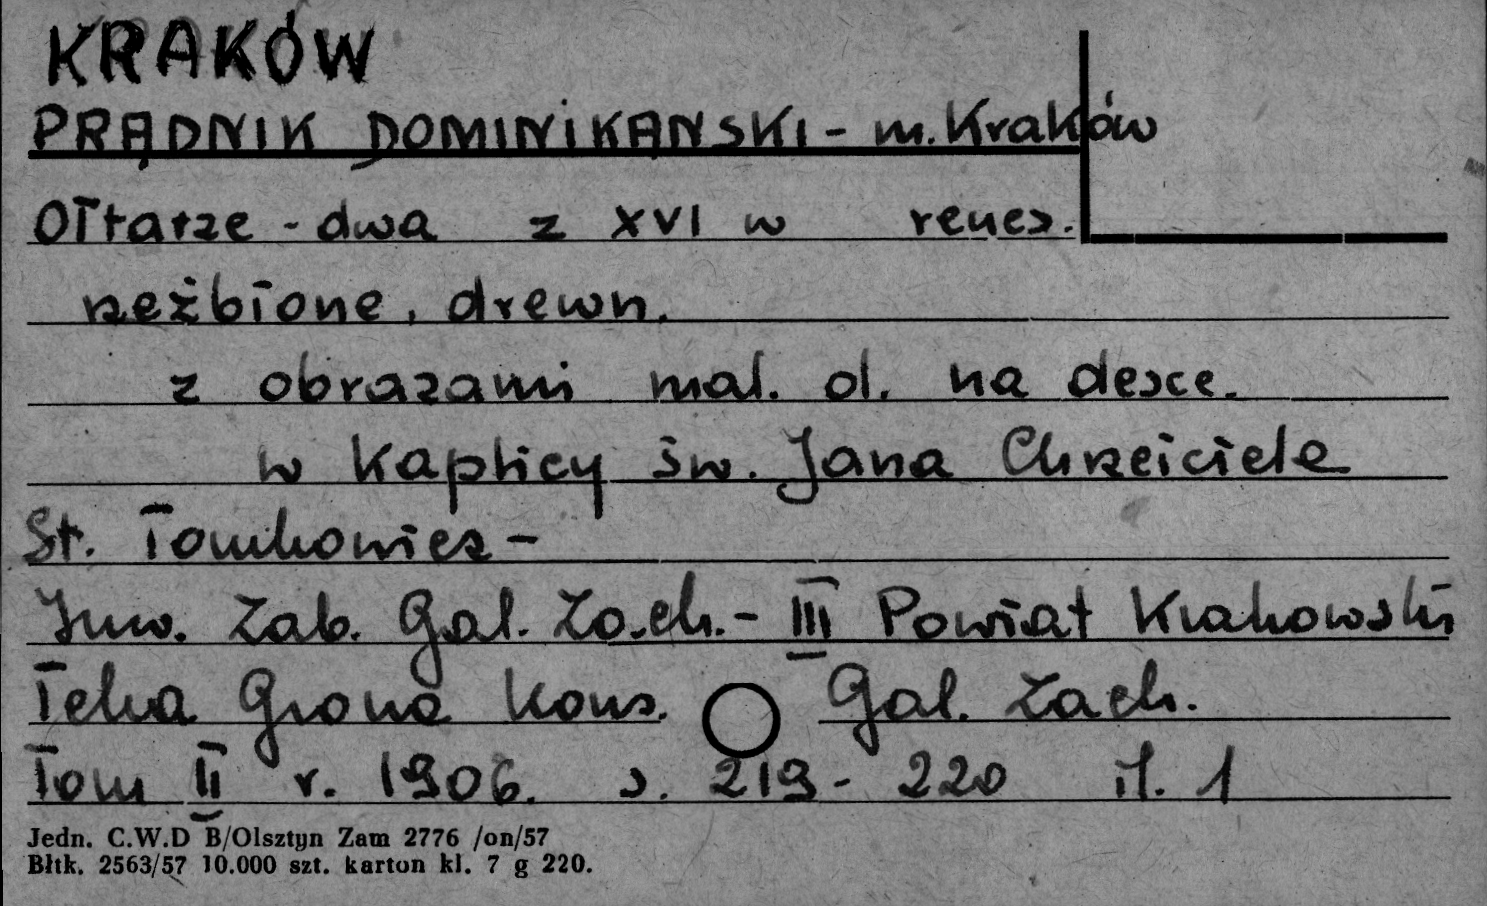 KRAKÓW
PRĄDNIK DOMINIKAŃSKI - m. Kraków
Ołtarze - dwa z XVI w renes.
rzeźbione, drewn.
z obrazami mal. ol. na desce.
w kaplicy św. Jana Chrzciciela
St. Tomkowicz -
Inw. Zab. Gal. Zach. - III Powiat Krakowski
Teka Grona Kons. Gal. Zach.
Tom II r. 1906. s. 219 - 220 il. 1
Jedn. C.W.D B/Olsztyn Zam 2776 /on/57
Błtk. 2563/57 10.000 szt. karton kl. 7 g 220.